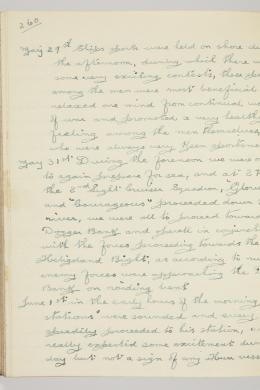 260
May 29th Ships sports were held on shore du
the afternoon, during which there w
some very exciting contests, these spo
among the men were most beneficial
relaxed one mind from continual wo
of war and promoted a very health
feeling among the men themselves,
who were always very keen sportsme
May 31st During the forenoon we were o
to again prepare for sea, and at 2
the 8th Light Cruiser Squadron, Glorio
and "Courageous" proceeded down t
river, we were all to proceed toward
Dogger Bank and operate in conjunct
with the forces proceeding towards the
Heligoland Bight, as according to ru
enemy forces were approaching the
Bank on raiding bent
June 1st in the early hours of the morning
stations" were sounded and every
speedily proceeded to his station, w
really expected some excitement duri
day but not a sign of any Hun vess